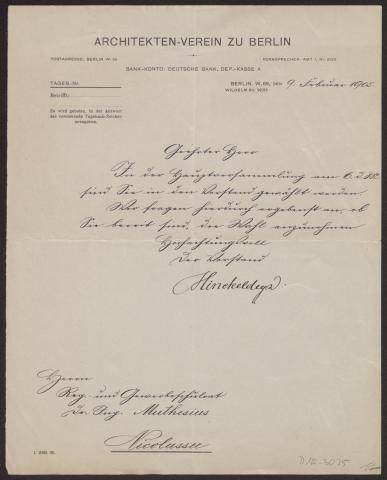 ARCHITEKTEN-VEREIN ZU BERLIN
POSTADRESSE: BERLIN W. 66
FERNSPRECHER: AMT I, Nr.
BANK-KONTO: DEUTSCHE BANK, DEP.-KASSE A
TAGEB.-Nr.
BERLIN, W. 66, DEN 9. Februar 1905.
WILHELMSTR. 92/93
Betrifft:
Es wird gebeten, in der Antwort
das vorstehende Tagebuch-Zeichen
anzugeben.
Geehrter Herr
In der Hauptversammlung am 6. d. M.
sind Sie in den Vorstand gewählt worden.
Wir fragen hierdurch ergebenst an, ob
Sie bereit sind, die Wahl anzunehmen
Hochachtungsvoll
Der Vorstand
Hinckeldeyn
Herrn
Reg.- und Gewerbeschulrat
Dr. Ing. Muthesius
Nicolassee